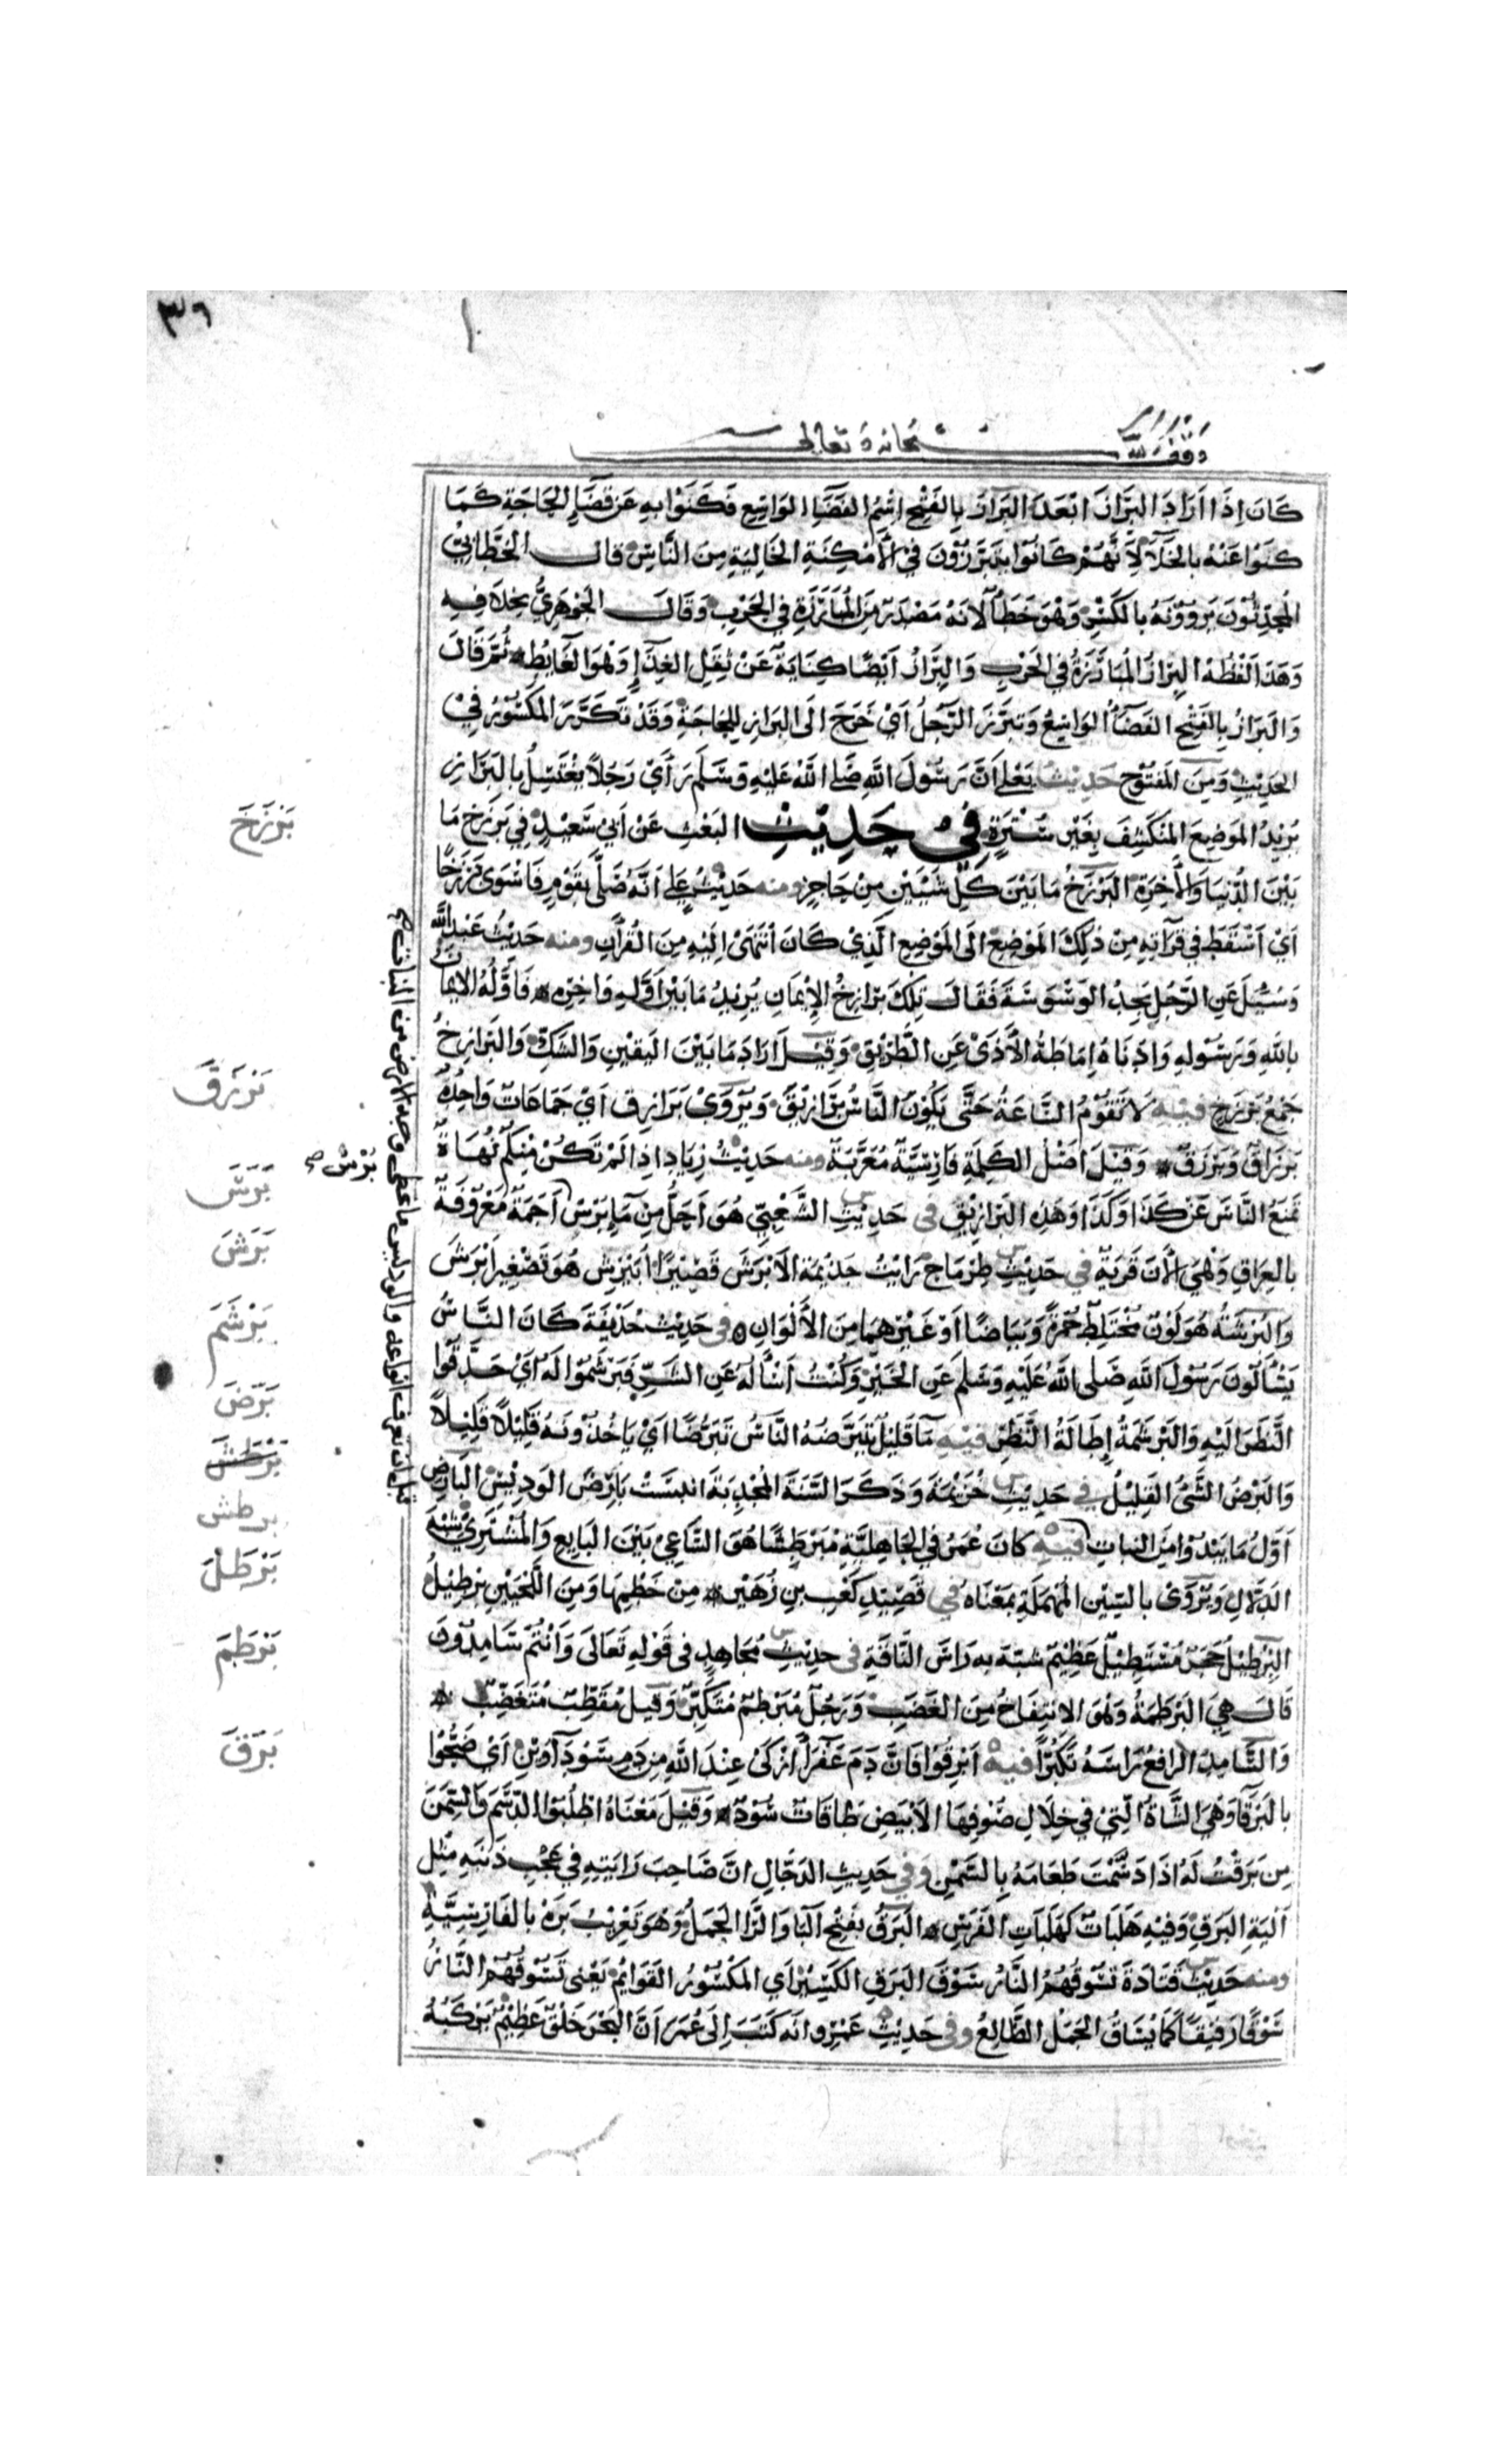 ٣٦
وقف لله سبحانه وتعالى
كَانَ اِذَا اَرَادَ البَرَازَ اَبْعَدَ البَرَازُ بِالفَتْحِ اِسْمُ الفَضَاءِ الوَاسِعِ فَكَنَوْا بِهِ عَنْ قَضَاءِ الحَاجَةِ كَمَا
كَنَوْا عَنْهُ بِالخَلَاءِ لِاَنَّهُمْ كَانُوا يَتَبَرَّزُوْنَ فِي الاَمْكِنَةِ الخَالِيَةِ مِنَ النَّاسِ قال الخَطَّابِيُّ
المُحَدِّثُوْنَ يَرْوُوْنَهُ بِالكَسْرِ وَهُوَ خَطَأٌ لِاَنَّهُ مَصْدَرٌ مِنَ المُبَارَزَةِ فِي الحَرْبِ وَقَالَ الجَوْهَرِيُّ بِخِلَافِهِ
وَهَذَا لَفْظُهُ البِرَازُ المُبَارَزَةُ فِي الحَرْبِ وَالبِرَازُ اَيْضًا كِنَايَةٌ عَنْ ثُفْلِ الغِذَاءِ وَهُوَ الغَايِطُ ثُمَّ قَالَ
وَالبَرَازُ بِالفَتْحِ الفَضَاءُ الوَاسِعُ وَتَبَرَّزَ الرَّجُلُ اَيْ خَرَجَ اِلَى البَرَازِ لِلْحَاجَةِ وَقَدْ تَكَرَّرَ المَكْسُوْرُ فِيْ
الحَدِيْثِ وَمِنَ المَفْتُوْحِ حَدِيْثُ يَعْلَى اَنَّ رَسُوْلَ اللَّهِ صَلَّى اللَّهُ عَلَيْهِ وَسَلَّمَ رَأَىْ رَجُلًا يَغْتَسِلُ بِالبَرَازِ
يُرِيْدُ المَوْضِعَ المُنْكَشِفَ بِغَيْرِ سُتْرَةٍ فِيْ حَدِيْثِ البَعْثِ عَنْ اَبِيْ سَعِيْدٍ فِيْ بَرْزَخِ مَا
بَيْنَ الدُّنْيَا وَالْاٰخِرَةِ البَرْزَخُ مَا بَيْنَ كُلِّ شَيْئَيْنِ مِنْ حَاجِزٍ ومنه حَدِيْثُ عَلِيٍّ اَنَّهُ صَلَّى بِقَوْمٍ فَاَسْوَى بَرْزَخًا
اَيْ اَسْقَطَ فِيْ قِرَاتِهِ مِنْ ذٰلِكَ المَوْضِعِ اِلَى المَوْضِعِ الَّذِيْ كَانَ اَنْتَهَىْ اِلَيْهِ مِنَ القُرْآنِ ومنه حَدِيْثُ عَبْدِ اللَّهِ
وَسُئِلَ عَنِ الرَّجُلِ يَجِدُ الوَسْوَسَةَ فَقَالَ تِلْكَ بَرَازِخُ الاِيْمَانِ يُرِيْدُ مَا بَيْنَ اَوَّلِهِ وَاٰخِرِهِ فَاَوَّلُهُ الاِيْمَانُ
بِاللهِ وَرَسُوْلِهِ وَاَدْنَاهُ اِمَاطَةُ الاَذَىْ عَنِ الطَّرِيْقِ وَقِيْلَ اَرَادَ مَا بَيْنَ اليَقِيْنِ وَالشَّكِّ وَالبَرَازِخُ
جَمْعُ بَرْزَخٍ فِيْهِ لَا تَقُوْمُ السَّاعَةُ حَتَّى يَكُوْنَ النَّاسُ بَرَازِيْقَ وَيُرْوَىْ بَرَازِقَ اَيْ جَمَاعَاتٍ وَاحِدُهُ
بِرْزَاقٌ وَبَرْزَقٌ وَقِيْلَ اَصْلُ الكَلِمَةِ فَارِسِيَّةٌ مُعَرَّبَةٌ ومنه حَدِيْثُ زِيَادٍ اِذَا لَمْ تَكُنْ مِنْكُمْ نُهَاةٌ
تَمْنَعُ النَّاسَ عَنْ كَذَا وَكَذَا وَهَذِهِ البَرَازِيْقِ فى حَدِيْثِ الشَّعْبِيِّ هُوَ اَحَلُّ مِنْ مَاءِ بُرْسٍ اَجَمَةٌ مَعْرُوْفَةٌ
بِالعِرَاقِ وَهْيَ الاٰنَ قَرْيَةٌ في حَدِيْثِ طِرِمَّاحٍ رَاَيْتُ جَذِيْمَةَ الاَبْرَشَ قَصِيْرًا اُبَيْرِشَ هُوَ تَصْغِيْرُ اَبْرَشَ
وَالبُرْشَةُ هُوَ لَوْنٌ مُخْتَلِطٌ حُمْرَةً وَبَيَاضًا اَوْ غَيْرُهُمَا مِنَ الاَلْوَانِ فى حَدِيْثِ حُذَيْفَةَ كَانَ النَّاسُ
يَسْأَلُوْنَ رَسُوْلَ اللهِ صَلَّى اللهُ عَلَيْهِ وَسَلَّمَ عَنِ الخَيْرِ وَكُنْتُ اَسْأَلُهُ عَنِ الشَّرِّ فَبَرْشَمُوْا لَهُ اَيْ حَدَّقُوا
النَّظَرَ اِلَيْهِ وَالبَرْشَمَةُ اِطَالَةُ النَّظَرِ فِيْهِ مَاءٌ قَلِيْلٌ يَتَبَرَّضُهُ النَّاسُ تَبَرُّضًا اَيْ يَاخُذُوْنَهُ قَلِيْلًا قَلِيْلًا
وَالبَرْضُ الشَّيْءُ القَلِيْلُ في حَدِيْثِ خُزَيْمَةَ وَذَكَرَ السَّنَةَ المُجْدِبَةَ اَيْبَسَتْ بَارِضَ الوَدِيْسِ البَارِضُ
اَوَّلُ مَا يَبْدُوْا مِنَ النَّبَاتِ فِيْهِ كَانَ عُمَرُ فِي الجَاهِلِيَّةِ مُبَرْطِشًا هُوَ السَّاعِيْ بَيْنَ البَايِعِ وَالمُشْتَرِيْ شِبْهَ
الدَّلَّالِ وَيُرْوَى بِالسِّيْنِ المُهْمَلَةِ بِمَعْنَاهُ في قَصِيْدِ كَعْبِ بنِ زُهَيْرٍ مِنْ خَطْمِهَا وَمِنَ اللَّحْيَيْنِ بِرْطِيْلُ
البِرْطِيْلُ حَجَرٌ مُسْتَطِيْلٌ عَظِيْمٌ شَبَّهَ بِهِ رَاسَ النَّاقَةِ فى حَدِيْثِ مُجَاهِدٍ فى قَوْلِهِ تَعَالَى وَاَنْتُمْ سَامِدُوْنَ
قَالَ هِيَ البَرْطَمَةُ وَهُوَ الاِنْتِفَاخُ مِنَ الغَضَبِ وَرَجُلٌ مُبَرْطِمٌ مُتَكَبِّرٌ وَقِيْلَ مُقَطِّبٌ مُتَغَضِّبٌ
وَالسَّامِدُ الرَّافِعُ رَاسَهُ تَكَبُّرًا فِيْهِ اَبْرِقُوْا فَاِنَّ دَمَ عَفْرَاءَ اَزْكَىْ عِنْدَ اللَّهِ مِنْ دَمِ سَوْدَاوَيْنِ اَيْ ضَحُّوْا
بِالبَرْقَاءِ وَهْيَ الشَّاةُ الَّتِيْ فِيْ خِلَالِ صُوْفِهَا الاَبْيَضِ طَاقَاتٌ سُوْدٌ وَقِيْلَ مَعْنَاهُ اطْلُبُوْا الدَّسَمَ وَالسِّمَنَ
مِنْ بَرَقْتُ لَهُ اِذَا دَسَّمْتَ طَعَامَهُ بِالسَّمْنِ وَفي حَدِيْثِ الدَّجَّالِ اِنَّ صَاحِبَ رَايَتِهِ فِيْ عَجْبِ ذَنَبِهِ مِثْلُ
اَلْيَةِ البَرَقِ وَفِيْهِ هَلَبَاتٌ كَهَلَبَاتِ الفَرَسِ البَرَقُ بِفَتْحِ البَا وَالرَّا الحَمَلُ وَهُوَ تَعْرِيْبُ بَرَهْ بِالفَارِسِيَّةِ
ومنه حَدِيْثُ قَتَادَةَ تَسُوْقُهُمُ النَّارُ سَوْقَ البَرَقِ الكَسِيْرِ اَيِ المَكْسُوْرُ القَوَائِمِ يَعْنِى تَسُوْقُهُمُ النَّارُ
سَوْقًا رَفِيْقًا كَمَا يُسَاقُ الحَمَلُ الظَّالِعُ وفى حَدِيْثِ عَمْرٍو اَنَّهُ كَتَبَ اِلَى عُمَرَ اَنَّ البَحْرَ خَلْقٌ عَظِيْمٌ يَرْكَبُهُ
بَرْزَخَ
بَرْزَقَ
بُرْسْ صح
بَرَسَ
بَرَشَ
بَرْشَمَ
بَرَضَ
بَرْطَشَ
برطش
بَرْطَلَ
بَرْطَمَ
بَرَقَ